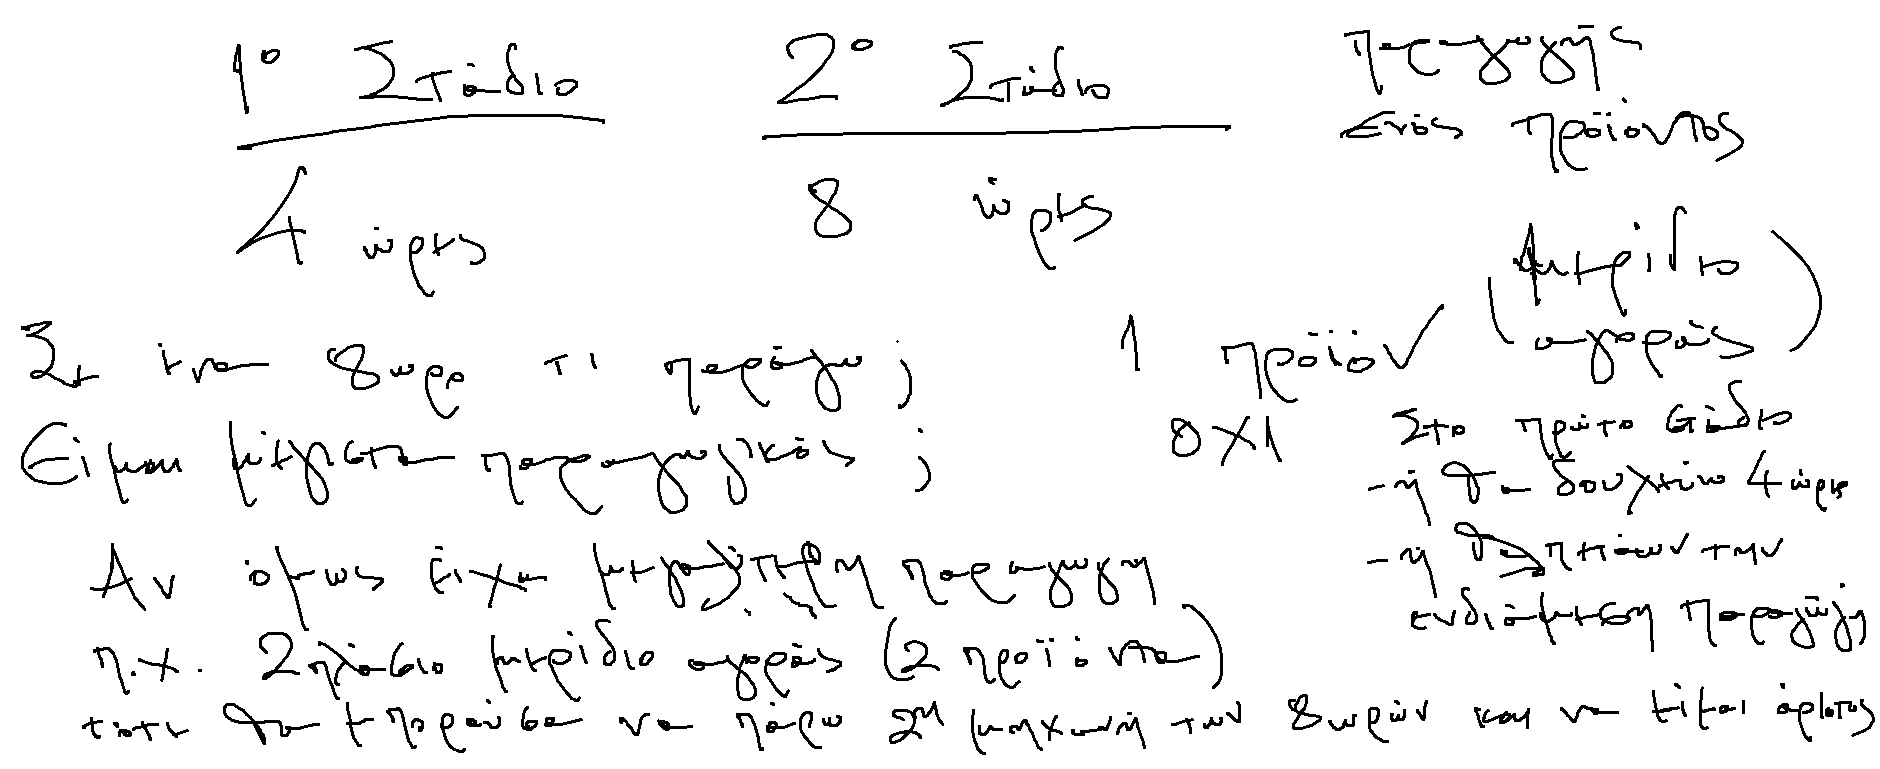 1º Στάδιο 2º Στάδιο παραγωγής
ενός προϊόντος
4 ώρες 8 ώρες
(μερίδιο
αγοράς)
Σε ένα 8ωρο τι παράγω; 1 προϊόν
Είμαι μέγιστα παραγωγικός; οχι
Στο πρώτο στάδιο
-ή θα δουλεύω 4 ώρες
-ή θα πετάω την
ενδιάμεση παραγωγή
Αν όμως είχα μεγαλύτερη παραγωγή
π.χ. 2πλάσιο μερίδιο αγοράς (2 προϊόντα)
τότε θα μπορούσα να πάρω 2η μηχανή των 8ωρών και να είμαι άριστος